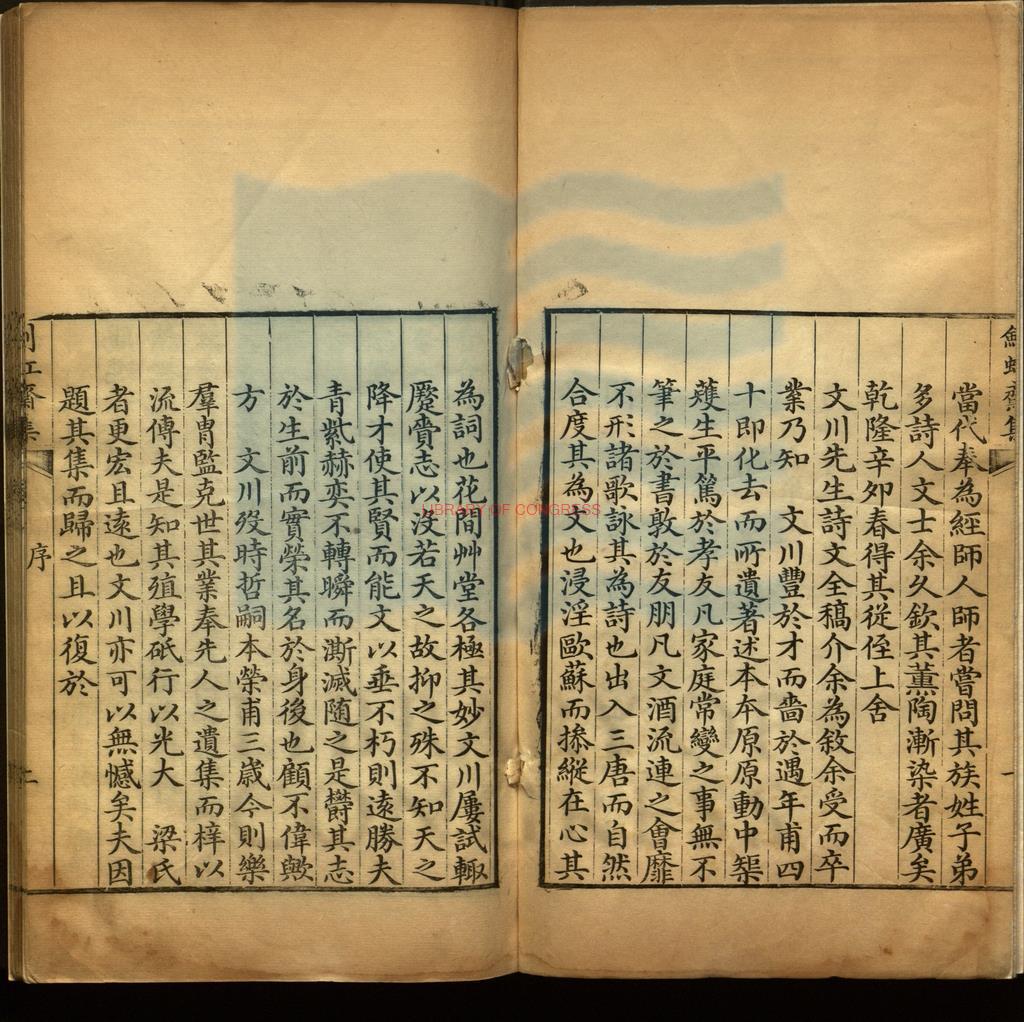 當代奉為經師人師者嘗問其族姓子弟
多詩人文士余久欽其薰陶漸染者廣矣
乾隆辛夘春得其從侄上舍
文川先生詩文全稿介余為敘余受而卒
業乃知 文川豐於才而嗇於遇年甫四
十即化去而所遺著述本本原原動中榘
矱生平篤於孝友凡家庭常變之事無不
筆之於書敦於友朋凡文酒流連之會靡
不形諸歌詠其為詩也出入三唐而自然
合度其為文也浸淫歐蘇而摻縱在心其
為詞也花間艸堂各極其妙文川屢試輙
蹷賫志以没若天之故抑之殊不知天之
降才使其賢而能文以垂不朽則遠勝夫
青紫赫奕不轉瞬而澌滅隨之是欝其志
於生前而實榮其名於身後也顧不偉歟
方 文川歿時哲嗣本榮甫三歲今則樂
羣胄監克世其業奉先人之遺集而梓以
流傳夫是知其殖學砥行以光大 梁氏
者更宏且遠也文川亦可以無憾矣夫因
題其集而歸之且以復於
序
LIBRARY OF CONGRESS